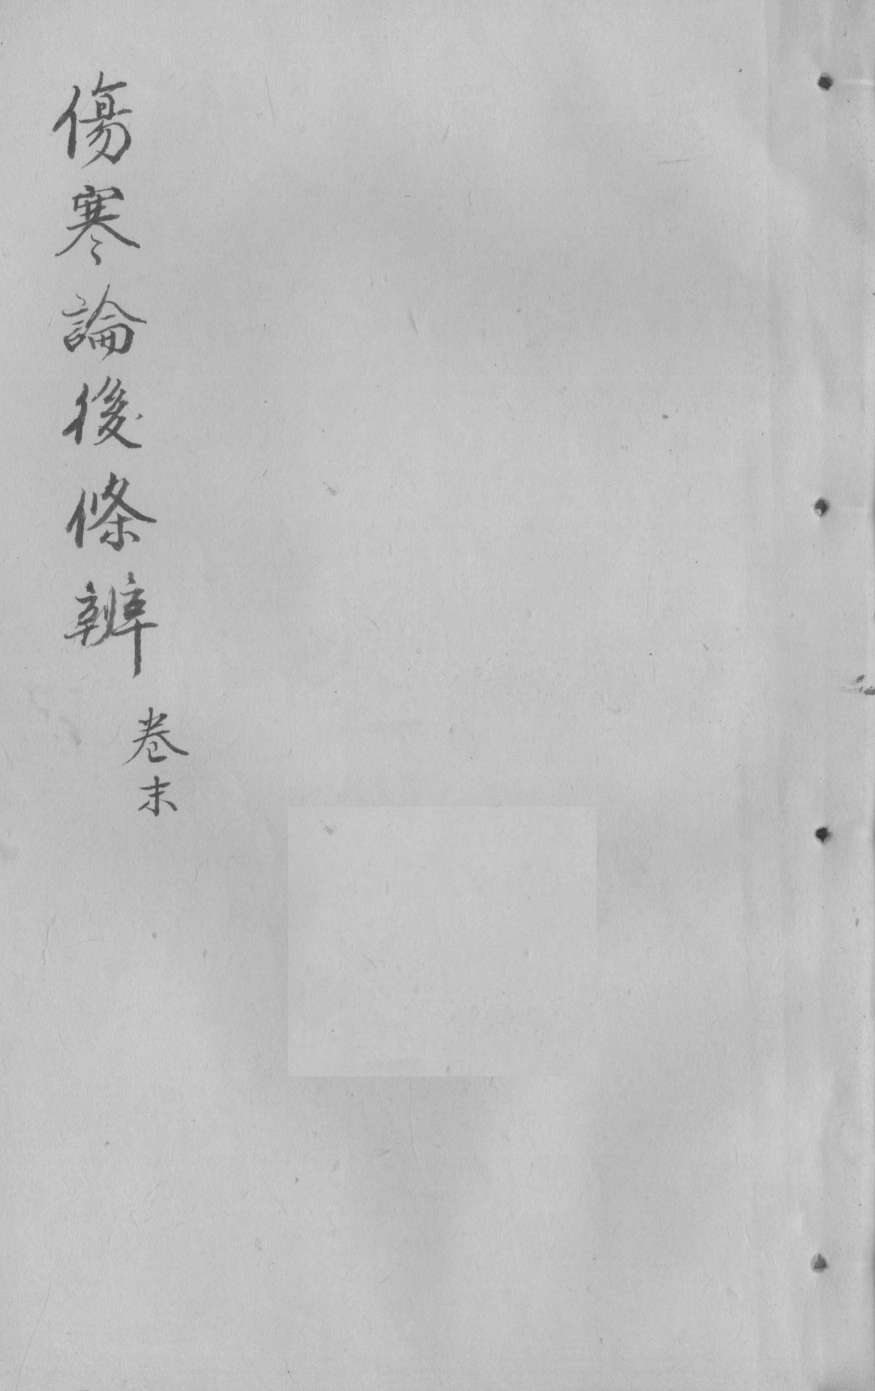 傷寒論後條辨
卷末